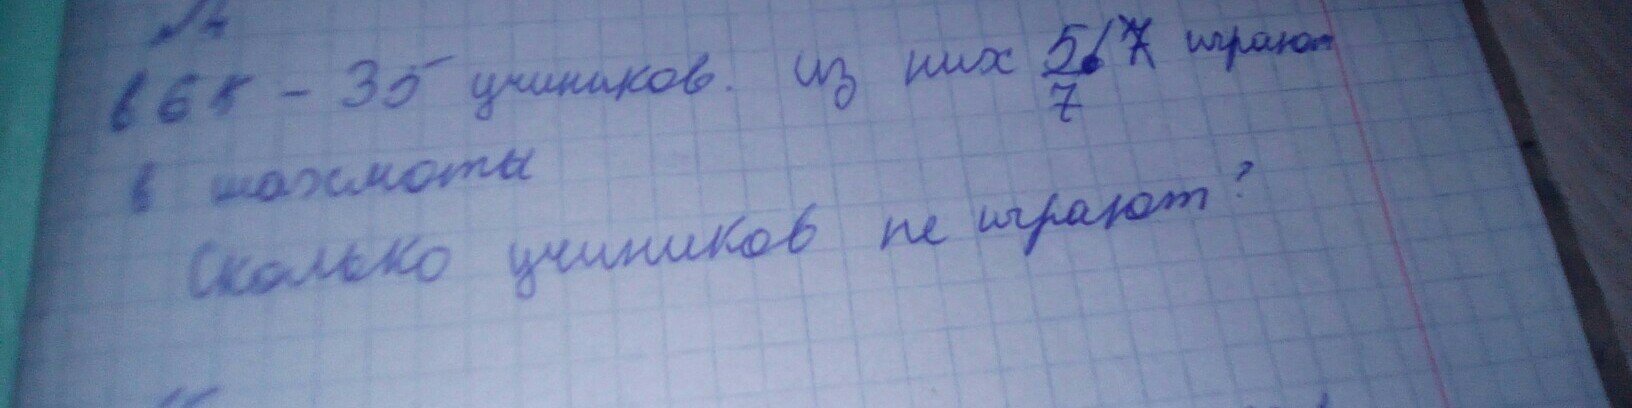 №4
в 6 к - 35 учиников. Из них 5/7 играют
в шахматы
Сколько учиников не играют?